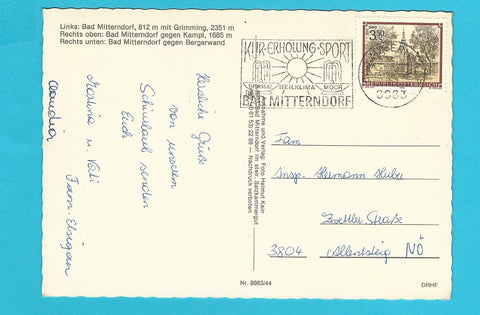 Links: Bad Mitterndorf, 812 m mit Grimming, 2351 m
Rechts oben: Bad Mitterndorf gegen Kampl, 1685 m
Rechts unten: Bad Mitterndorf gegen Bergerwand
Herzliche Grüße
von unserem
Schiurlaub senden
Euch
Martina u. Vati
Fam.
Claudia
KUR·ERHOLUNG·SPORT
THERMAL HEILKLIMA MOOR
BAD MITTERNDORF
8983
3.50
REPUBLIK ÖSTERREICH
Aufnahme und Verlag: Foto Helmut Kain
Bad Mitterndorf im steir. Salzkammergut
0 61 53/22 88 – Nachdruck verboten
Fam
Insp. Hermann Huber
Zwettler Straße
3804 Allentsteig NÖ
Nr. 8983/44
DRHF